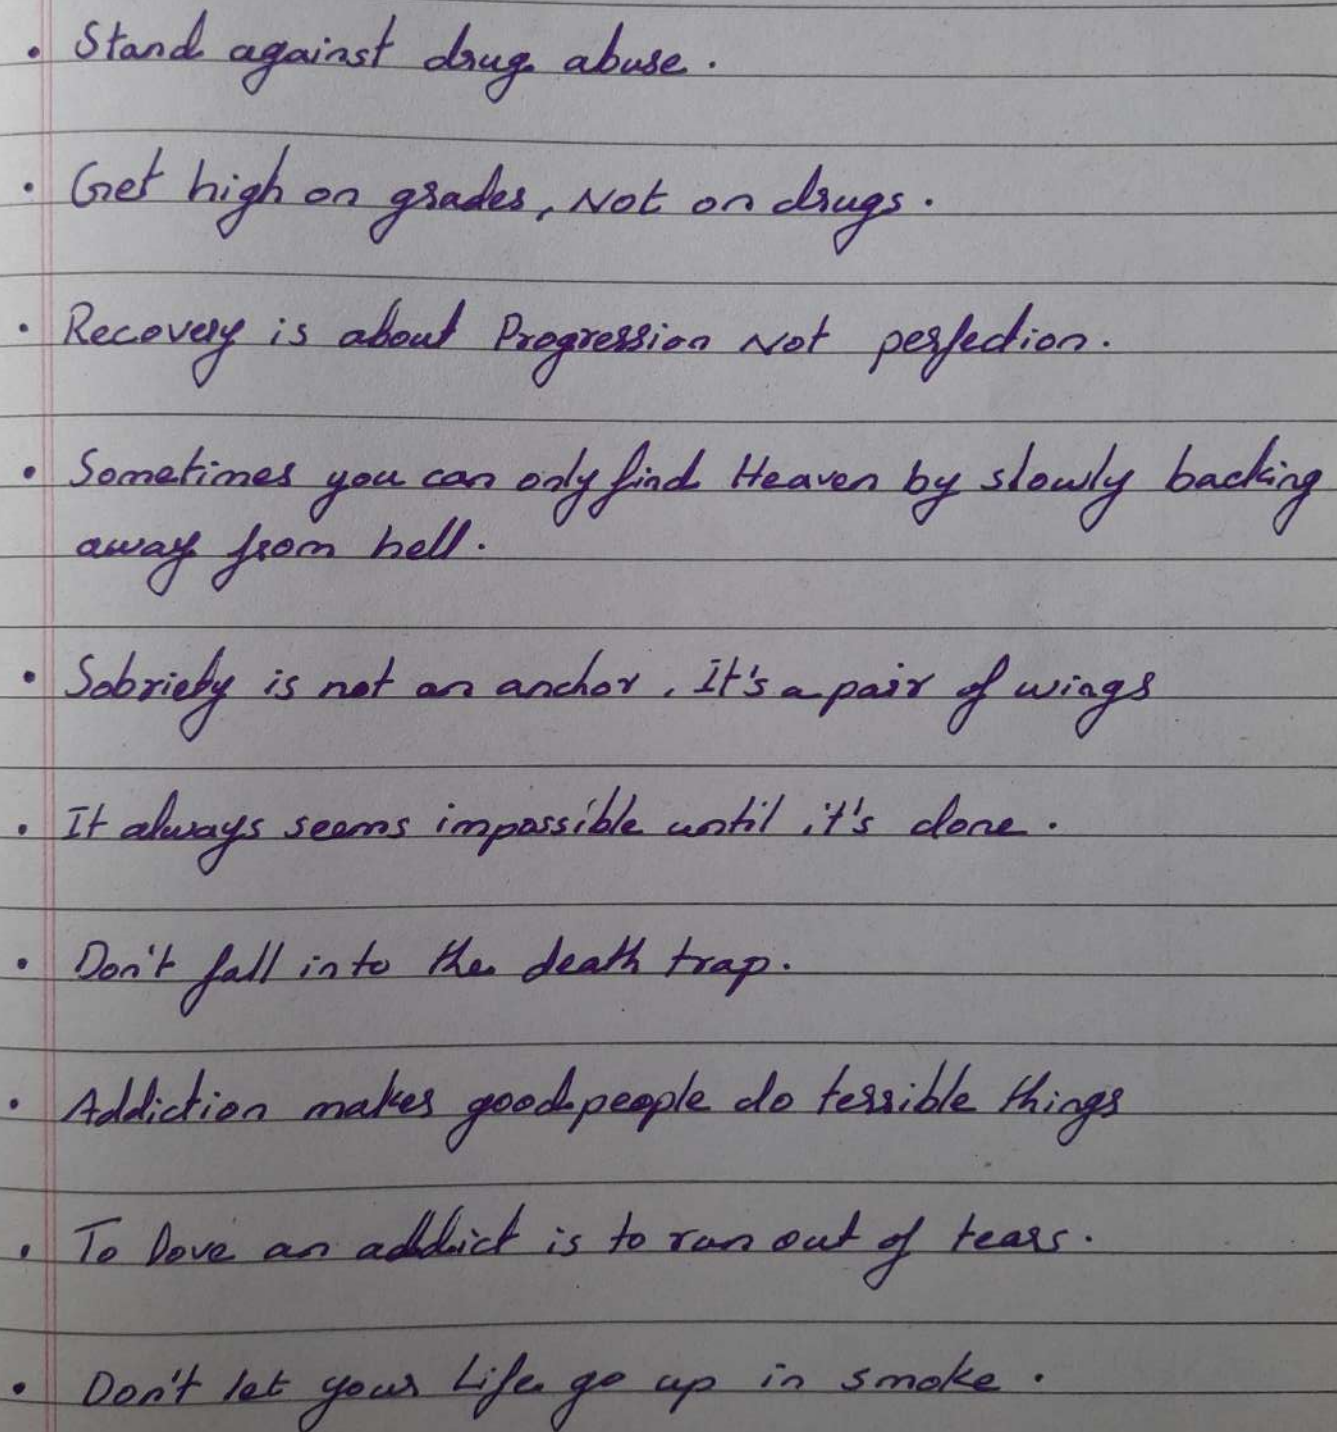 • Stand against drug abuse.
• Get high on grades, Not on drugs.
• Recovery is about Progression Not perfection.
• Sometimes you can only find Heaven by slowly backing
away from hell.
• Sobriety is not an anchor. It's a pair of wings
• It always seems impossible until it's done.
• Don't fall into the death trap.
• Addiction makes good people do terrible things
• To Love an addict is to run out of tears.
• Don't let your Life go up in smoke.